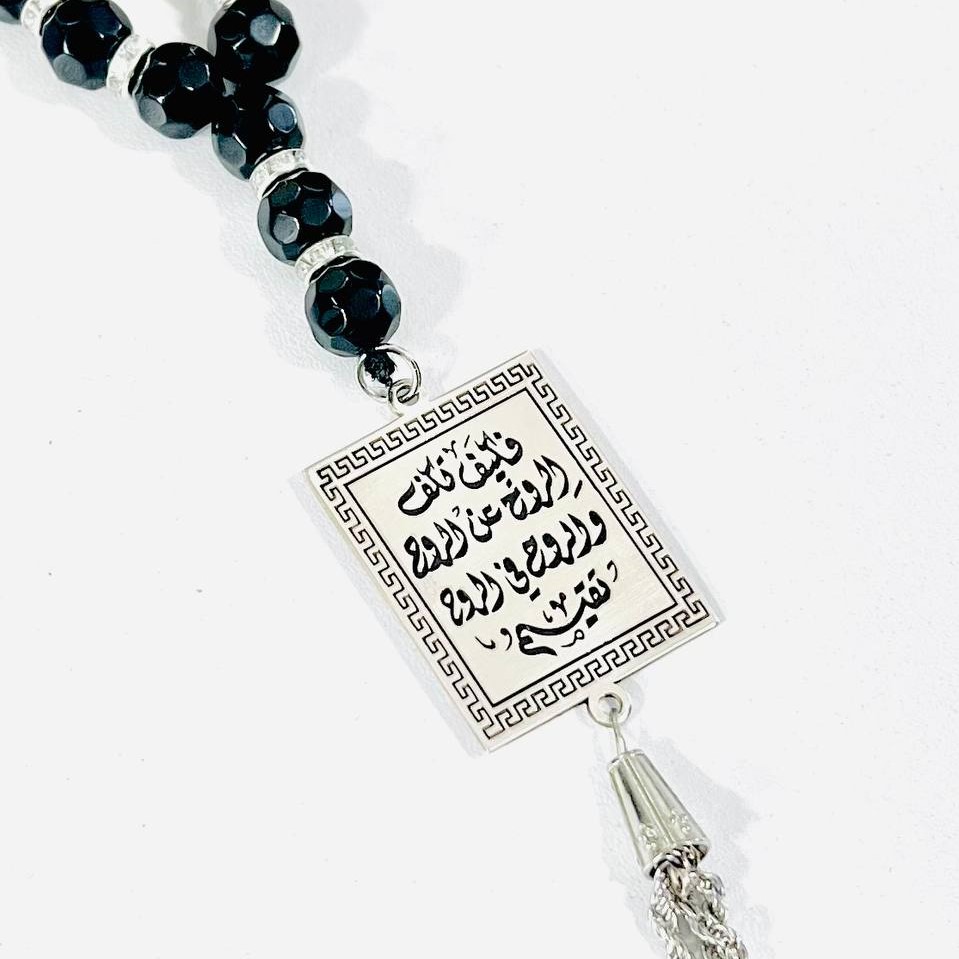 فكيف تكف
الروح عن الروح
والروح في الروح
تقيم